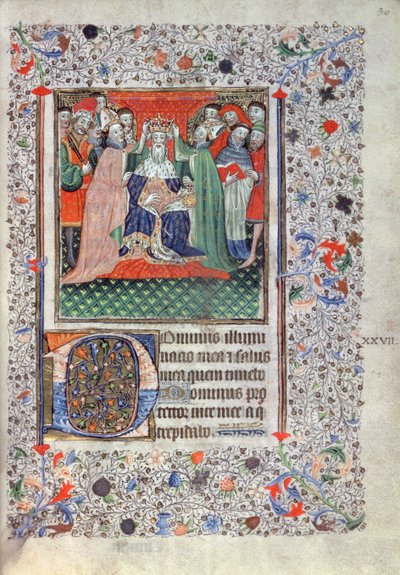 30
Dominus illumi
nacio mea ⁊ salus
mea quem timebo
Dominus pro
tector vite mee a q
trepidabo.
XXVII.